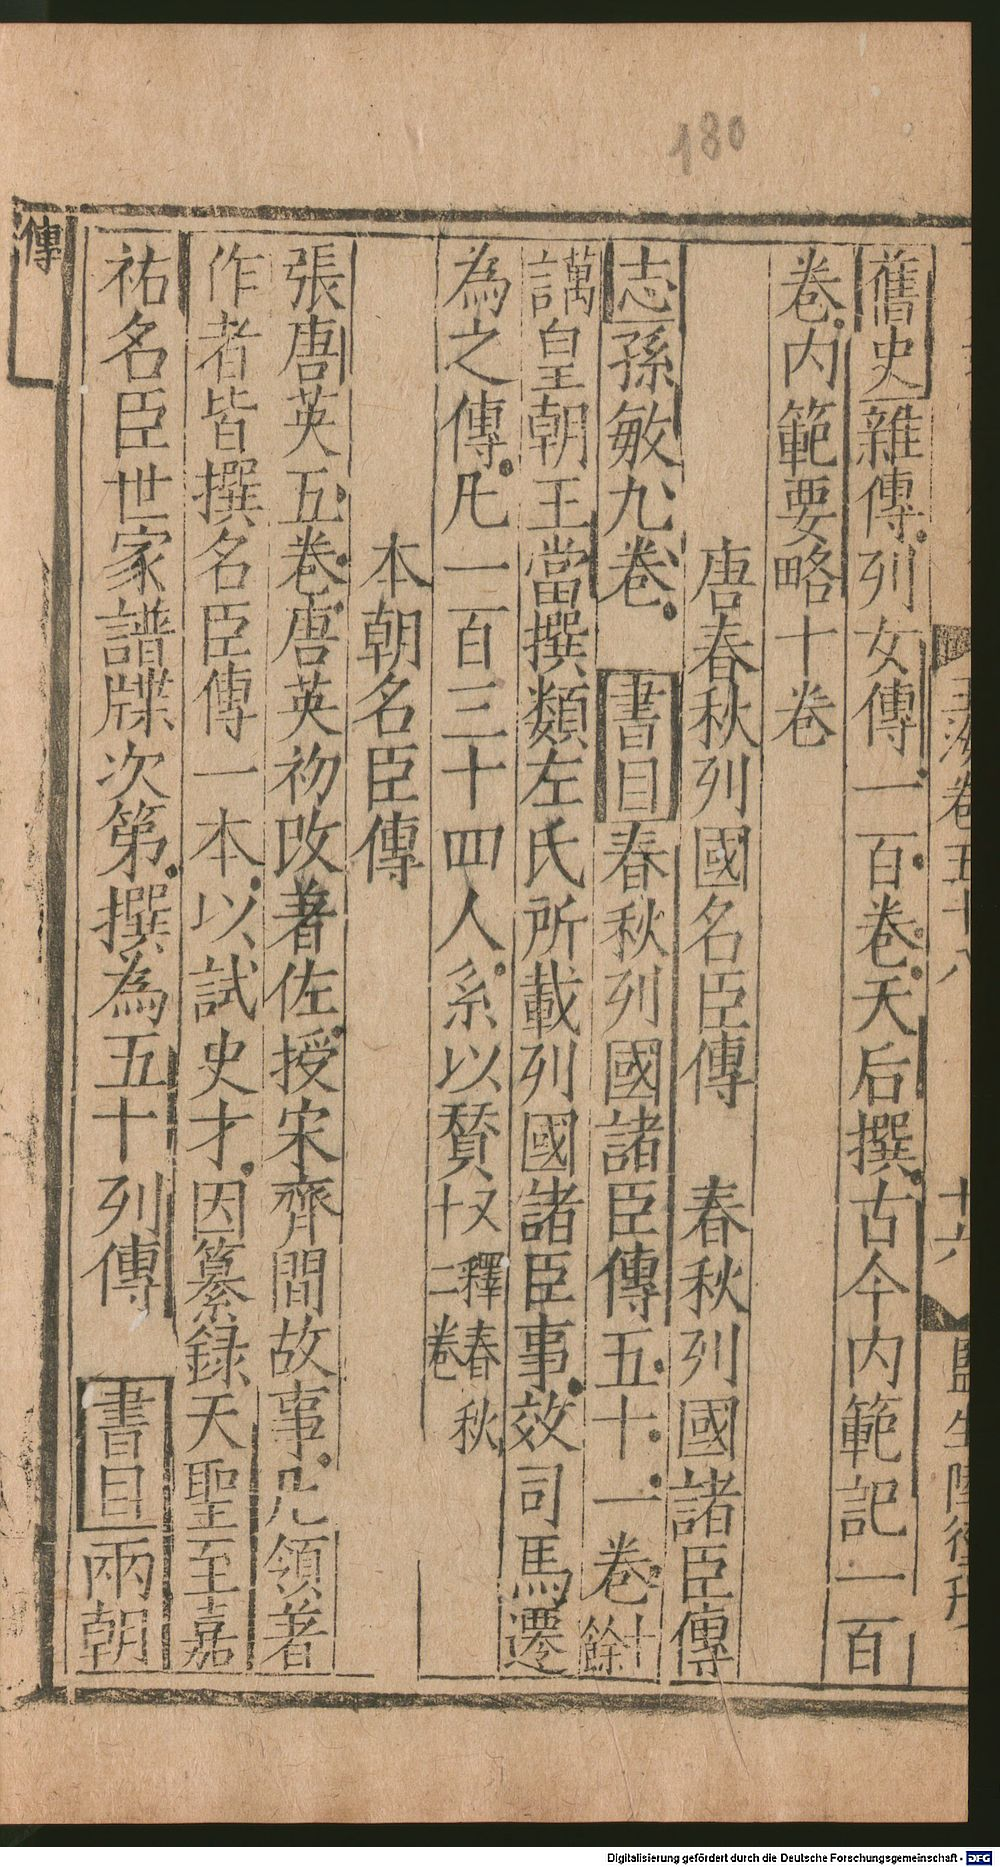 180
玉海卷五十八　十六
舊史雜傳列女傳一百卷天后撰古今内範記一百
卷内範要略十卷
唐春秋列國名臣傳　春秋列國諸臣傳
志孫敏九卷　書目春秋列國諸臣傳五十一卷十餘
謁皇朝王當撰類左氏所載列國諸臣事效司馬遷
為之傳凡一百三十四人系以賛又釋春秋十二卷
本朝名臣傳
張唐英五卷唐英初改著佐授宋齊間故事凡領著
作者皆撰名臣傳一本以試史才因纂録天聖至嘉
祐名臣世家譜牒次第撰為五十列傳　書目兩朝
傳
Digitalisierung gefördert durch die Deutsche Forschungsgemeinschaft - DFG